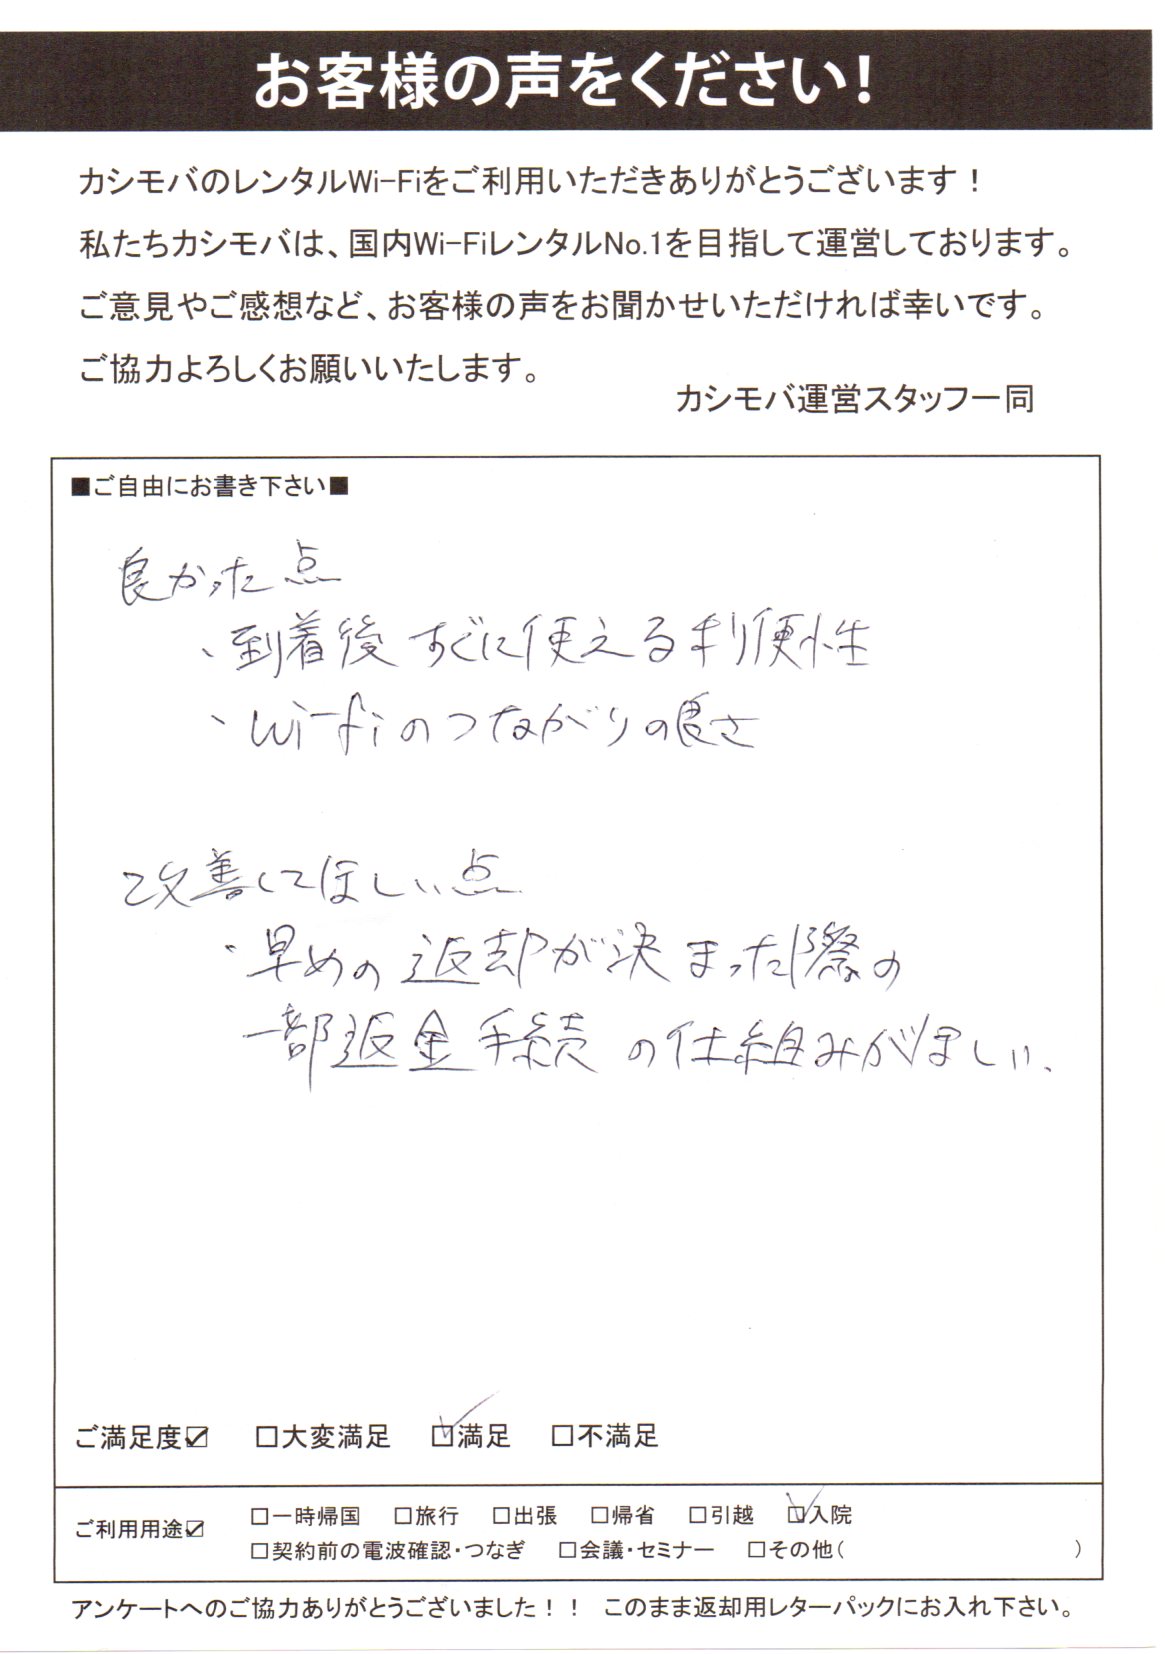 お客様の声をください！
カシモバのレンタルWi-Fiをご利用いただきありがとうございます！
私たちカシモバは、国内Wi-FiレンタルNo.1を目指して運営しております。
ご意見やご感想など、お客様の声をお聞かせいただければ幸いです。
ご協力よろしくお願いいたします。
カシモバ運営スタッフ一同
■ご自由にお書き下さい■
良かった点
・到着後すぐに使える利便性
・wi-fiのつながりの良さ
改善してほしい点
・早めの返却が決まった際の
一部返金手続の仕組みがほしい、
ご満足度☑ □大変満足 ☑満足 □不満足
ご利用用途☑ □一時帰国 □旅行 □出張 □帰省 □引越 ☑入院
□契約前の電波確認・つなぎ □会議・セミナー □その他（ ）
アンケートへのご協力ありがとうございました！！ このまま返却用レターパックにお入れ下さい。